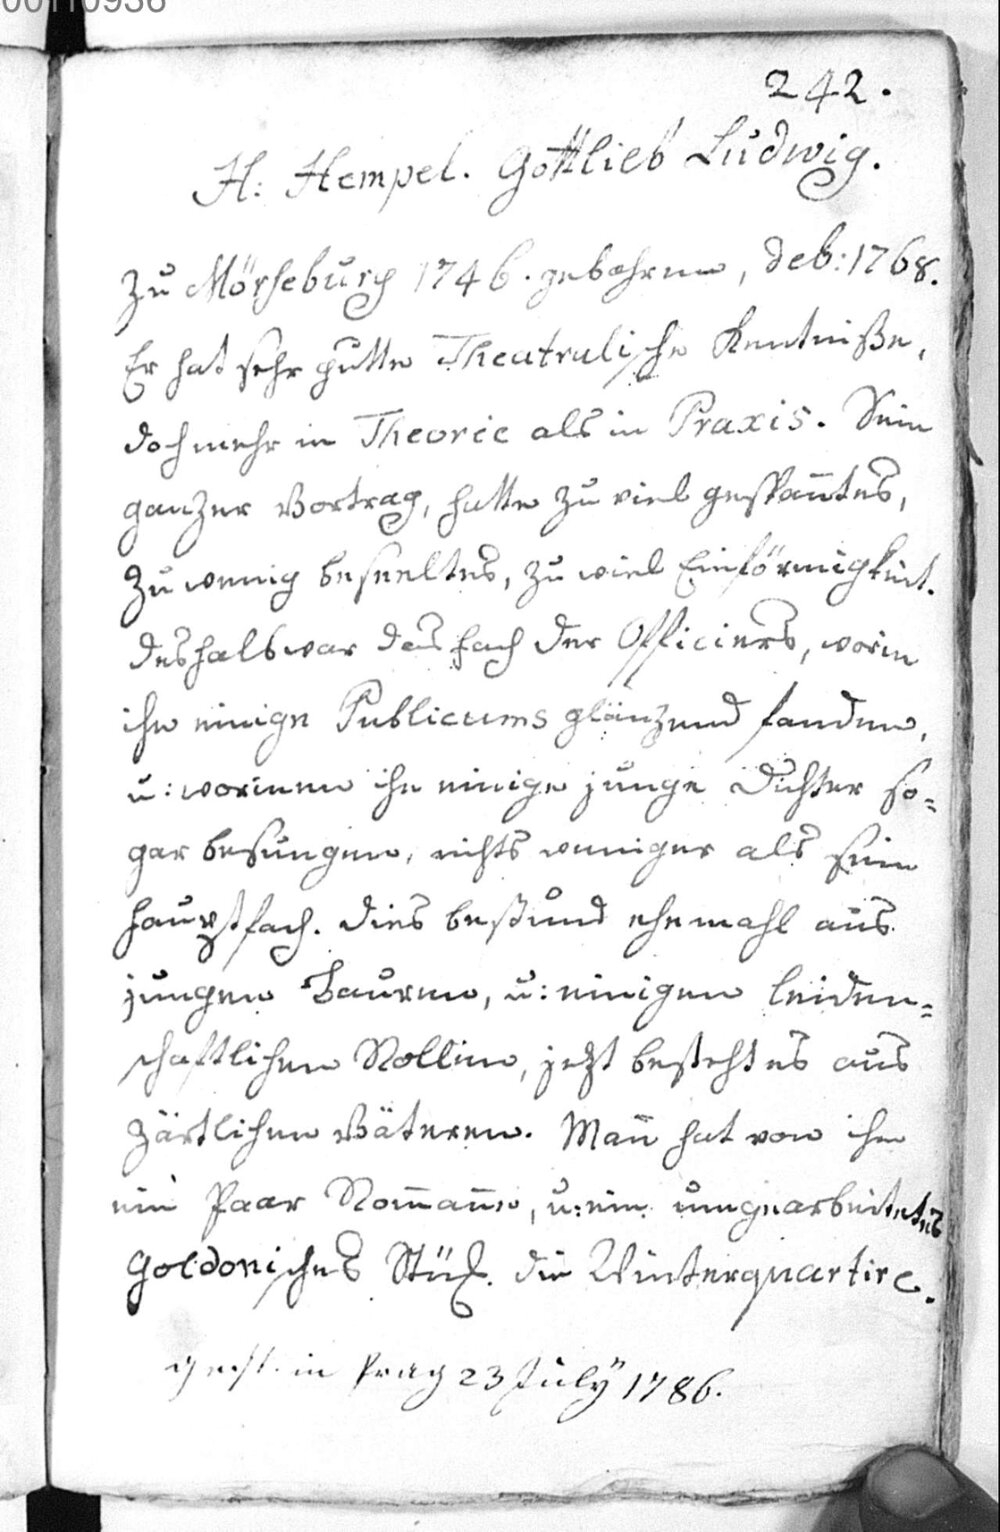 00110936
242.
H: Hempel. Gottlieb Ludwig.
Zu Mörseburg 1746. gebohrenn, deb: 1768.
Er hat sehr gutte Theatralische Kentniße,
doch mehr in Theorie als in Praxis. Sein
ganzer Vortrag, hatte zu viel gespan̄tes,
zu wenig beseeltes, zu viel Einförmigkeit.
deshalb war das Fach der Officiers, worin
ihn einige Publicums glänzend fanden,
u: worinnen ihn einige junge Dichter so=
gar besungen, nichts weniger als sein
Hauptfach. Dies bestund ehemahl aus
jungen Bauren, u: einigen leiden=
schaftlichen Rollen, jezt besteht es aus
zärtlichen Väteren. Man̄ hat von ihm
ein Paar Rom̄an̄e, u: ein umgearbeitetes
Goldonisches Stük. die Winterquartire.
gest. in Prag 23 Julÿ 1786.